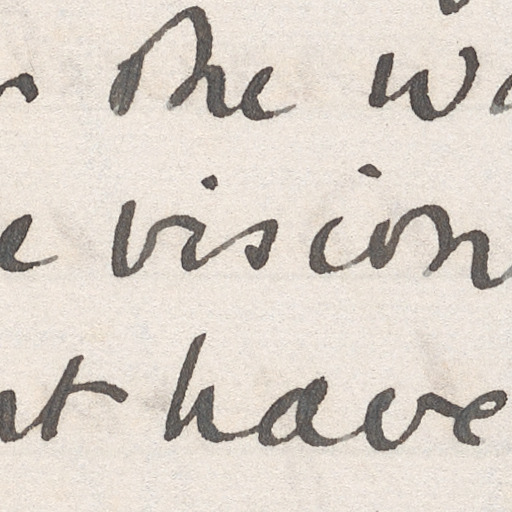 the wa
e vision
nt have